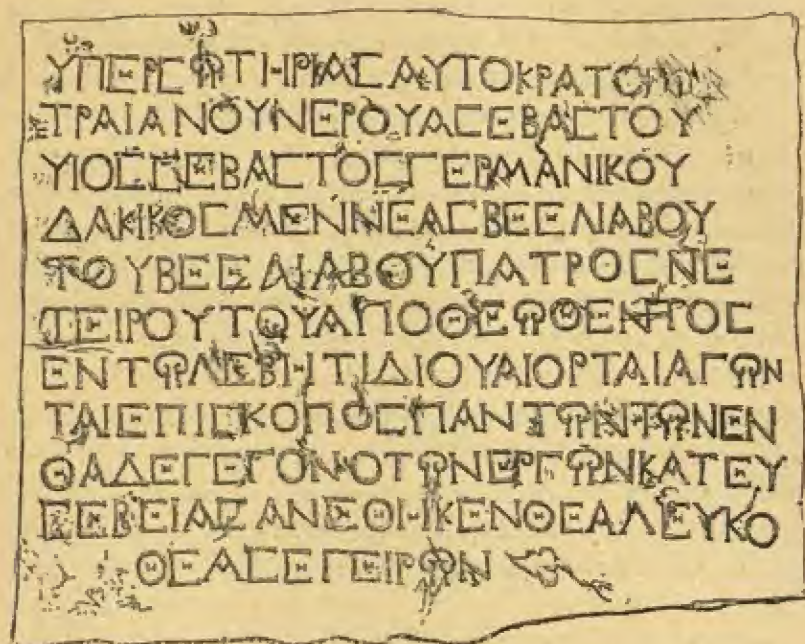 ΥΠΕΡCΩΤΗΡΙΑCΑΥΤΟΚΡΑΤΟΡΟC
ΤΡΑΙΑΝΟΥΝΕΡΟΥΑCΕΒΑCΤΟΥ
ΥΙΟCCΕΒΑCΤΟCΓΕΡΜΑΝΙΚΟΥ
ΔΑΚΙΚΟCΜΕΝΝΕΑCΒΕΕΛΙΑΒΟΥ
ΤΟΥΒΕΕΛΙΑΒΟΥΠΑΤΡΟCΝΕ
ΤΕΙΡΟΥΤΟΥΑΠΟΘΕΩΘΕΝΤΟC
ΕΝΤΩΛΕΒΗΤΙΔΙΟΥΑΙΟΡΤΑΙΑΓΩΝ
ΤΑΙΕΠΙCΚΟΠΟCΠΑΝΤΩΝΤΩΝΕΝ
ΘΑΔΕΓΕΓΟΝΟΤΩΝΕΡΓΩΝΚΑΤΕΥ
CΕΒΕΙΑCΑΝΕΘΗΚΕΝΘΕΑΛΕΥΚΟ
ΘΕΑCΕΓΕΙΡΩΝ